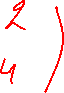 2
4 )